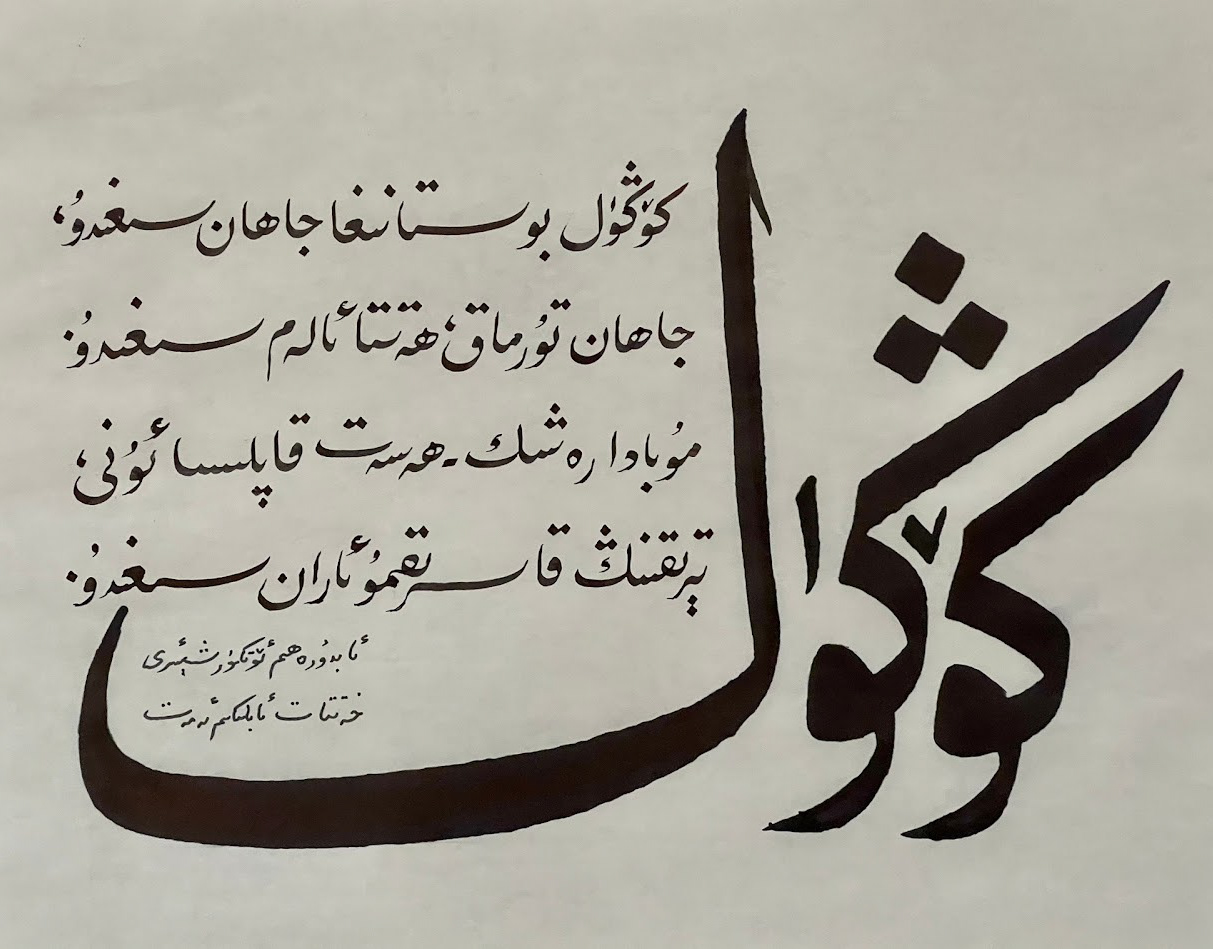 كۆڭۈل
كۆڭۈل بوستانىغا جاھان سىغىدۇ،
جاھان تۇرماق، ھەتتا ئالەم سىغىدۇ.
مۇبادا رەشك-ھەسەت قاپلىسا ئۇنى،
تېرىقنىڭ قاسرىقىمۇ ئاران سىغىدۇ.
ئابدۇرەھىم ئۆتكۈر شېئىرى
خەتتات ئابلىكىم ئەمەت